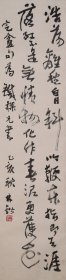 浩蕩離愁白日斜吟鞭東指即天涯
落紅不是無情物化作春泥更護花
定盦句